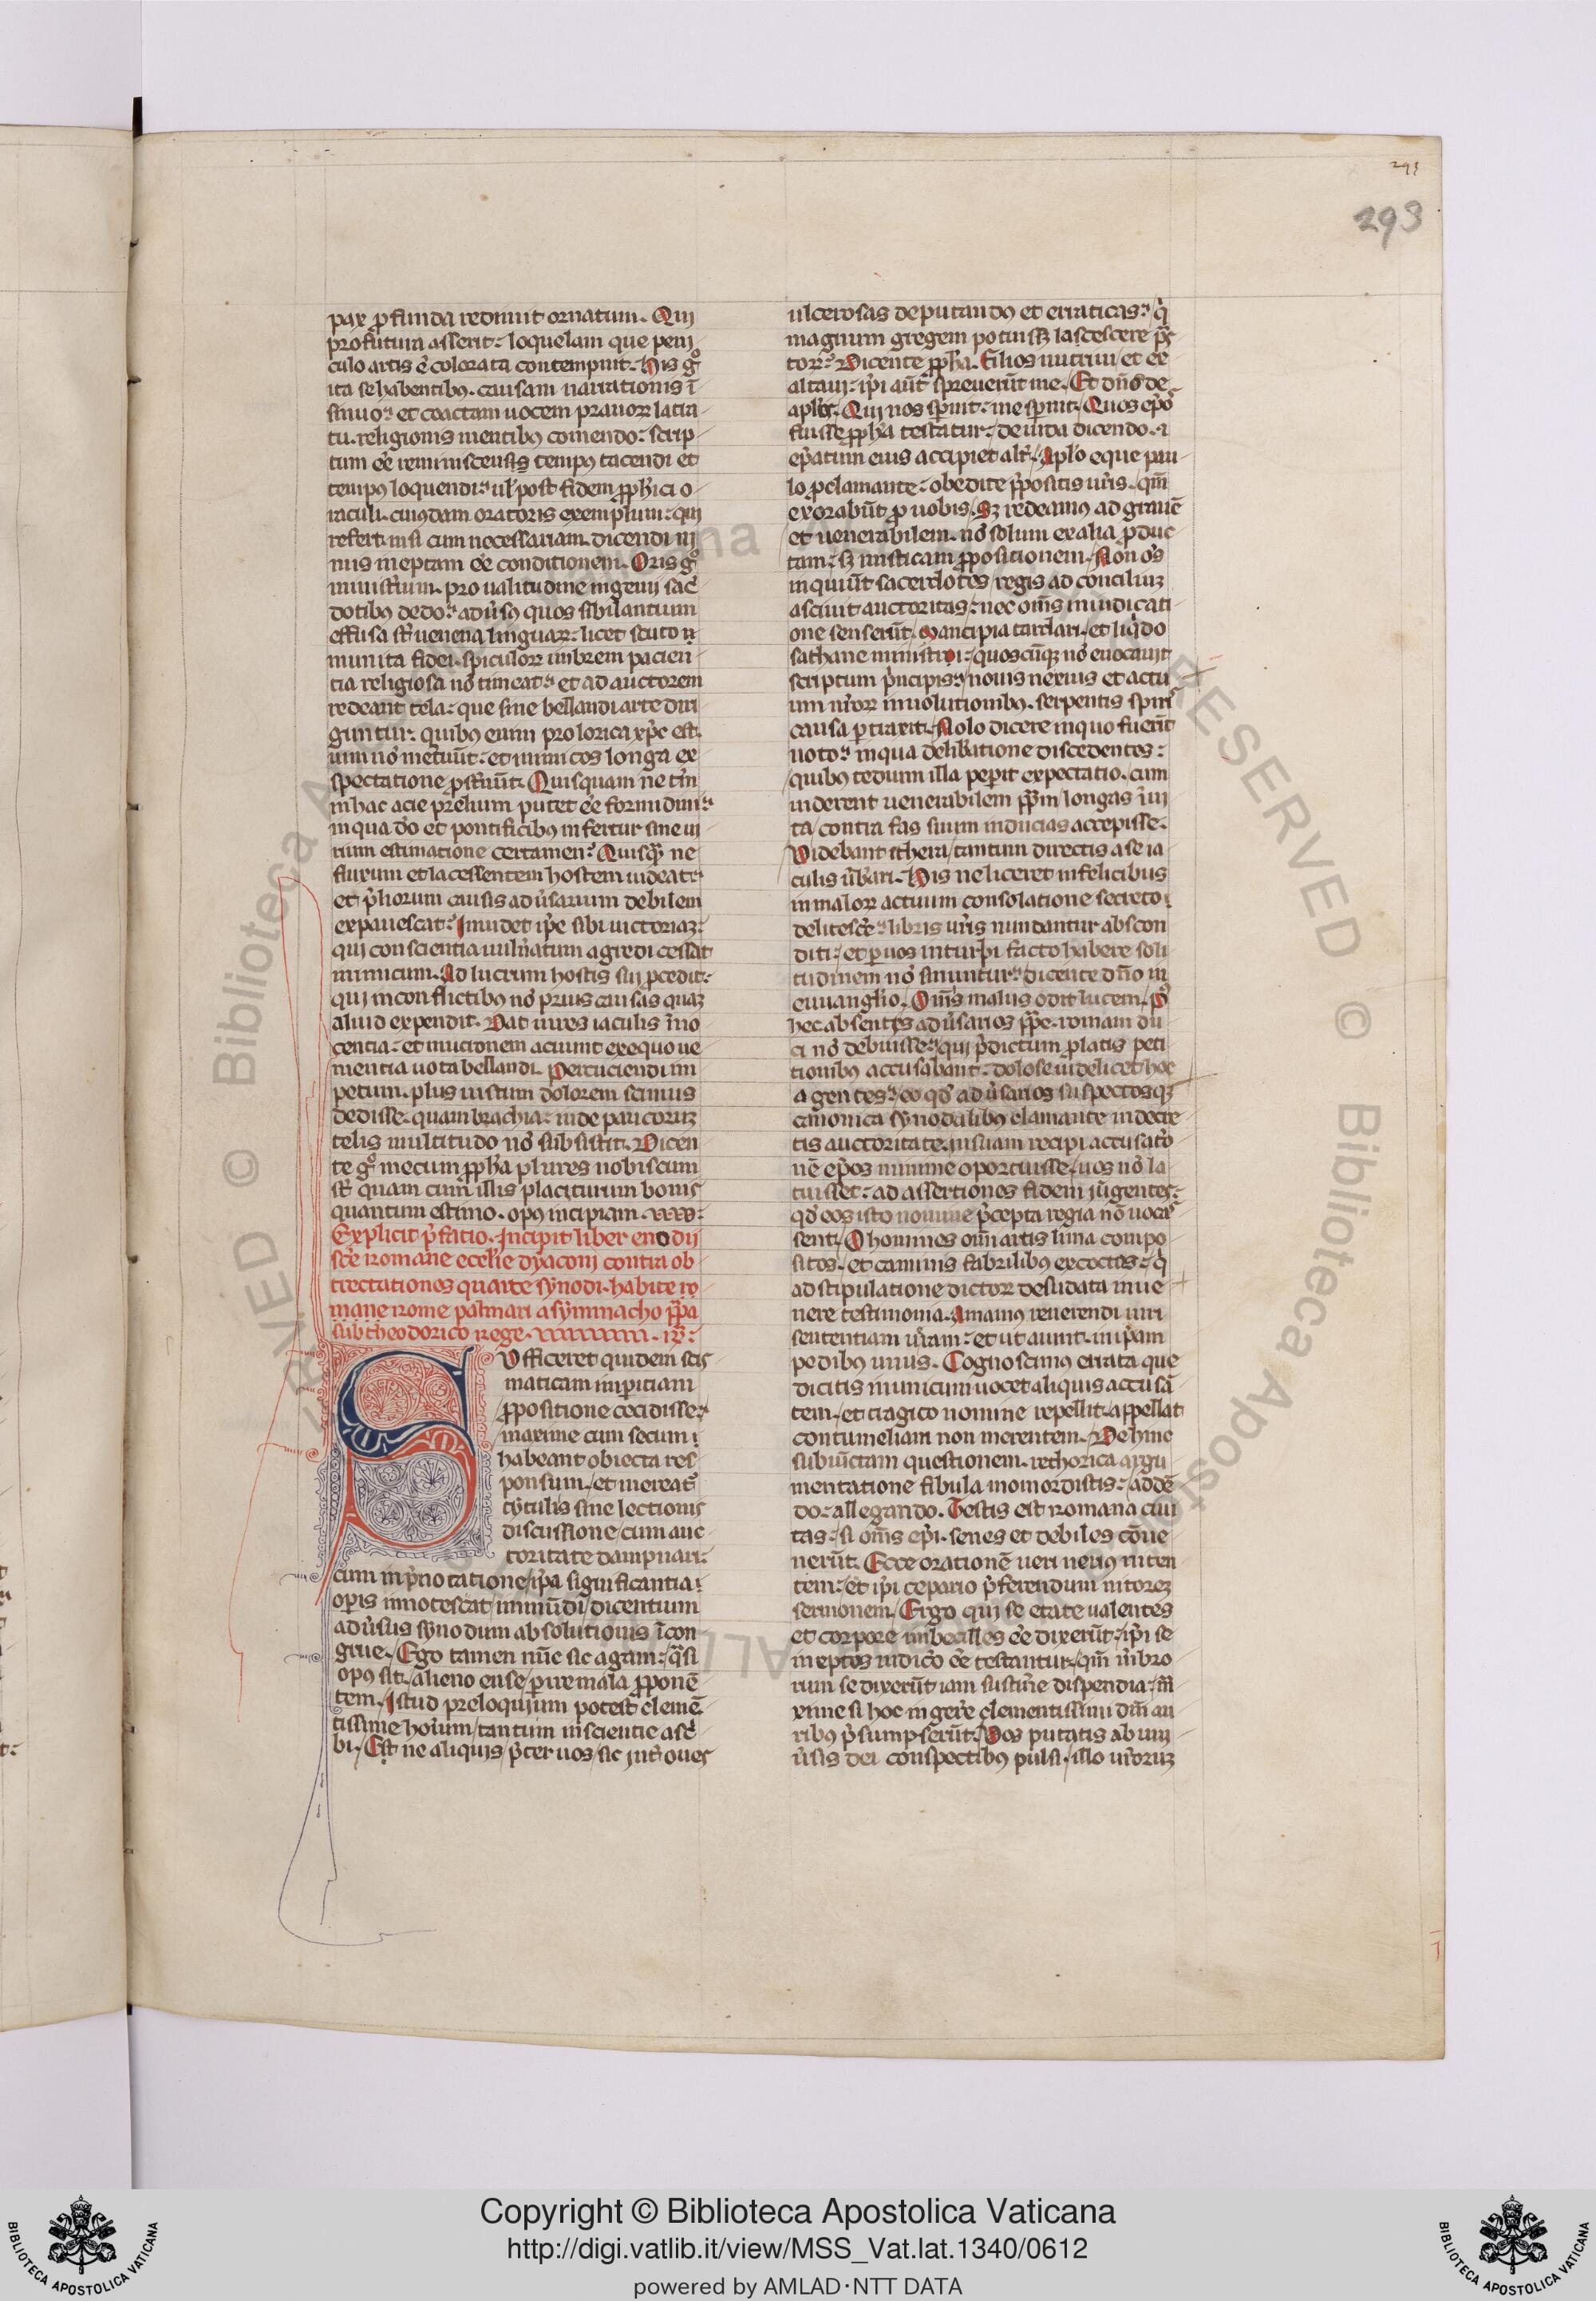 293
293
pax p̱funda redimit ornatum. Qui
profutura asserit: loquelam que peni
culo artis ē colorata contempnit. His gͦ
ita se habentibꝰ. causam narrationis ī
sinuo: et coactam uocem prauoꝝ latra
tu. religionis mentibꝰ comendo: scrip
tum eē reminiscens tempꝰ tacendi et
tempꝰ loquendi: ul̓ post fidem ꝓph̓ici o
raculi. cuiusdam oratoris exemplum: qui
refert. nisi cum necessariam. dicendi mi
nus ineptam eē conditionem. Oris gͦ
ministrum. pro ualitudine ingenij sac̓
dotibꝰ dedo: adu̓sꝰ quos sibilantium
effusa st̄ uenena linguaꝝ: licet scuto ꝛ
munita fidei. spiculoꝝ imbrem pacien
tia religiosa nō timeat: et ad auctorem
redeant tela: que sine bellandi arte diri
guntur: quibꝰ enim pro lorica xp̄c est.
unū nō metuūt: et inimicos longa ex
spectatione ꝓst̓nūt. Quisquam ne tn̄
in hac acie prelium putet eē formidini:
in qua dō et pontificibꝰ infertur sine ui
rium estimatione certamen: Quisq̄ ne
fluxum et lacessentem hostem uideat:
et p̓liorum causis adu̓sarium debilem
expauescat: Inuidet ip̄e sibi uictoriaꝫ:
qui conscientia uuln̓atum agredi cessat
inimicum. Ad lucrum hostis sui ꝓcedit:
qui in conflictibꝰ nō prius causas quaꝫ
aliud expendit. Dat uires iaculis īno
centia: et mucronem acuunt ex equo ue
mentia uota bellandi. Percuciendi im
petum. plus iustum dolorem scimus
dedisse. quam brachia: inde paucoruꝫ
telis multitudo nō subsistit. Dicen
te gͦ mecum ꝓph̓a plures nobiscum
st̄ quam cum illis placiturum bonis
quantum estimo. opꝰ incipiam.
Explicit p̓fatio. Incipit liber enodij
sc̄e romane eccl̓ie dyaconi contra ob
trectationes quarte synodi. habite ro
mane rome palmari a symmacho pp̄a
sub theodorico rege.
Sufficeret quidem scis
maticam imperitiam
ꝓpositione cecidisse:
maxime cum secum
habeant obiecta res
ponsum. et mereat̓
tytulis sine lectionis
discussione cum auc
toritate dampnari:
cum in p̓notatione ip̄a significantia
oꝑis innotescat inmūdi dicentium
adu̓sus synodum absolutionis īcon
grue. Ego tamen nūc sic agam: q̄si
opꝰ sit. alieno ense ꝑire mala ꝓponē
tem. Istud preloquium potest clemē
tissime horum tantum inscientie asc̓
bi. Est ne aliquis p̓ter uos sic int̓ oues
ulcerosas deputandꝰ et erraticas: q̓
magnum gregem potuissꝫ lascescere p̄c̄
toꝝ: Dicente ꝓph̓a. Filios nutriui et ex
altaui: ip̄i aūt spreuerūt me. Et dn̄s de
apl̓is. Qui nos spernit: me spernit. Quos ep̄os
fuisse ꝓph̓a testatur: de iuda dicendo. ⁊
ep̄atum eius accipiet alt̓. Apl̓o eque pau
lo ꝓclamante: obedite p̓positis uris. qm̄
exorabūt ꝓ uobis. Sꝫ redeamꝰ ad grauē
et uenerabilem. nō solum ex alia ꝓduc
tam: sꝫ misticam ꝓpositionem. Non os̄
inquiūt sacerdotes regis ad conciliuꝫ
asciuit auctoritas: nec om̄s in iudicati
one senserūt. Mancipia tardari. et liq̓do
sathane ministri: quoscūqꝫ nō euocauit
scriptum p̓ncipis: nouis nexius et actu
um nr̄oꝝ inuolutionibꝰ. serpentis spir̄
causa ꝑtraxit. Nolo dicere in quo fuerūt
uoto: in qua delib̓atione discedentes:
quibꝰ tedium illa peperit expectatio. cum
uiderent uenerabilem pp̄m longas īui
ta contra fas suum inducias accepisse.
Videbant etheri tantum directis a se ia
culis u̓b̓ari. His ne liceret infelicibus
in maloꝝ actuum consolatione secreto
delitesce̓: libris ur̄is nundantur abscon
diti: et ꝑ uos in turpi facto habere soli
tudinem nō sinuntur: dicente dn̄o in
euuanglīo. Om̄s malus odit lucem. Pꝰ
hec absentes adu̓sarios pp̄e. romam du
ci nō debuisse: qui p̓dictum ꝓlatis peti
tionibꝰ accusabant: dolose uidelicet hoc
agentes: eo qd̓ adu̓sarios suspectosqꝫ
canonica synodalibꝰ clamante in decre
tis auctoritate. in suam recipi accusatō
nē ep̄os minime oportuisse. uos nō la
tuisset: ad assertiones fidem iūgentes:
qd̓ eos isto nomine p̓cepta regia nō uocas
sent. O homines om̄i artis lima compo
sitos. et caminis fabrilibꝰ excoctos: q̓
ad stipulatione dictoꝝ desudata inue
nere testimonia. Amamꝰ reuerendi uiri
sententiam ur̄am: et ut aiunt. in ip̄am
pedibꝰ imus. Cognoscimꝰ errata que
dicitis inimicum uocet aliquis accusā
tem. et tragico nomine repellit. appellat
contumeliam non merentem. Dehinc
subiūctam questionem. rethorica argu
mentatione fibula momordistis: addē
do: allegando. Testis est romana ciui
tas: si om̄s ep̄i. senes et debiles cōue
nerūt. Ecce orationē ueri neruis niten
tem: et ip̄i cepario p̓ferendum nitoreꝫ
sermonem. Ergo qui se etate ualentes
et corpore imbecilles eē dixerūt: ip̄i se
ineptos iudicō eē testantur. qm̄ mēbro
rum se dixerūt iam sustin̓e dispendia: m̄
xime si hoc ingere̓ clementissimi dn̄i au
ribꝰ p̓sumpserūt. Vos putatis ab uni
u̓sis dei conspectibꝰ pulsi. illo ur̄oruꝫ
Copyright © Biblioteca Apostolica Vaticana
http://digi.vatlib.it/view/MSS_Vat.lat.1340/0612
powered by AMLAD·NTT DATA
BIBLIOTECA APOSTOLICA VATICANA
BIBLIOTECA APOSTOLICA VATICANA